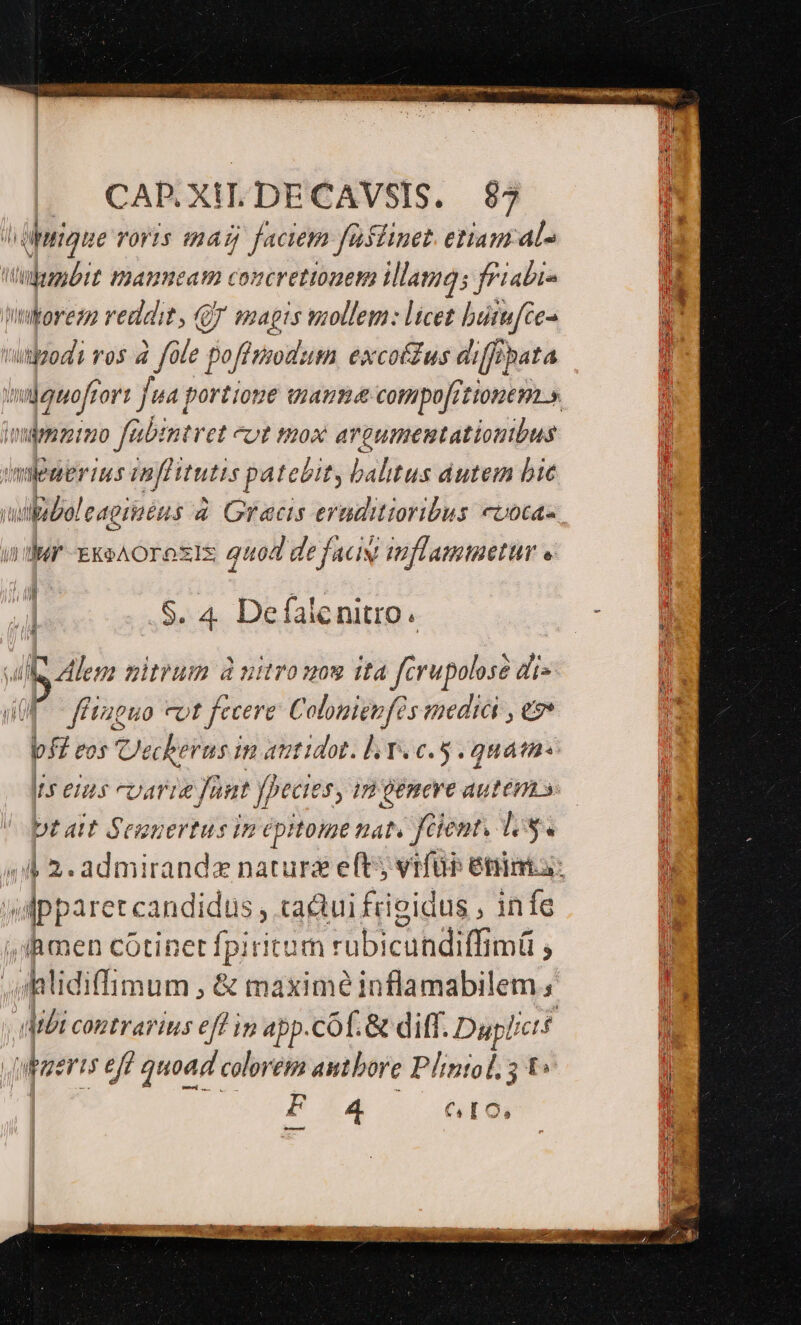 CAP. XII. DE CAVSIS. 87
roris maij faciem sustinet. etiam al-
manneam concretionem illamq; friabi-
reddit, & magis mollem: licet huiusce-
ros à sole postmodum excoctus dissipata
sua portione mannæ compositionem.
subintret vt mox argumentationibus
institutis patebit, halitus autem hic
à Græcis eruditioribus voca-
ΕΚΘΛΟΓΩΣΙΣ quod de facili inflammetur.
§. 4 De sale nitro.
Alem nitrum à nitro non ita scrupolosè di-
stinguo vt fecere Colonienses medici, &
eos Veckerus in antidot. l. 1. c. 5. quam-
eius variæ sunt species, in genere autem
vt ait Sennertus in epitome nat. scient. l. 5.
2. admirandæ naturæ est, visui enim
apparet candidus, tactui frigidus, in se
tamen cōtinet spiritum rubicundissimū,
calidissimum, & maximè inflamabilem,
sibi contrarius est in app. cōs. & diff. Duplicis
generis est quoad colorem authore Plinio l. 3 t.
F 4 c. 10,